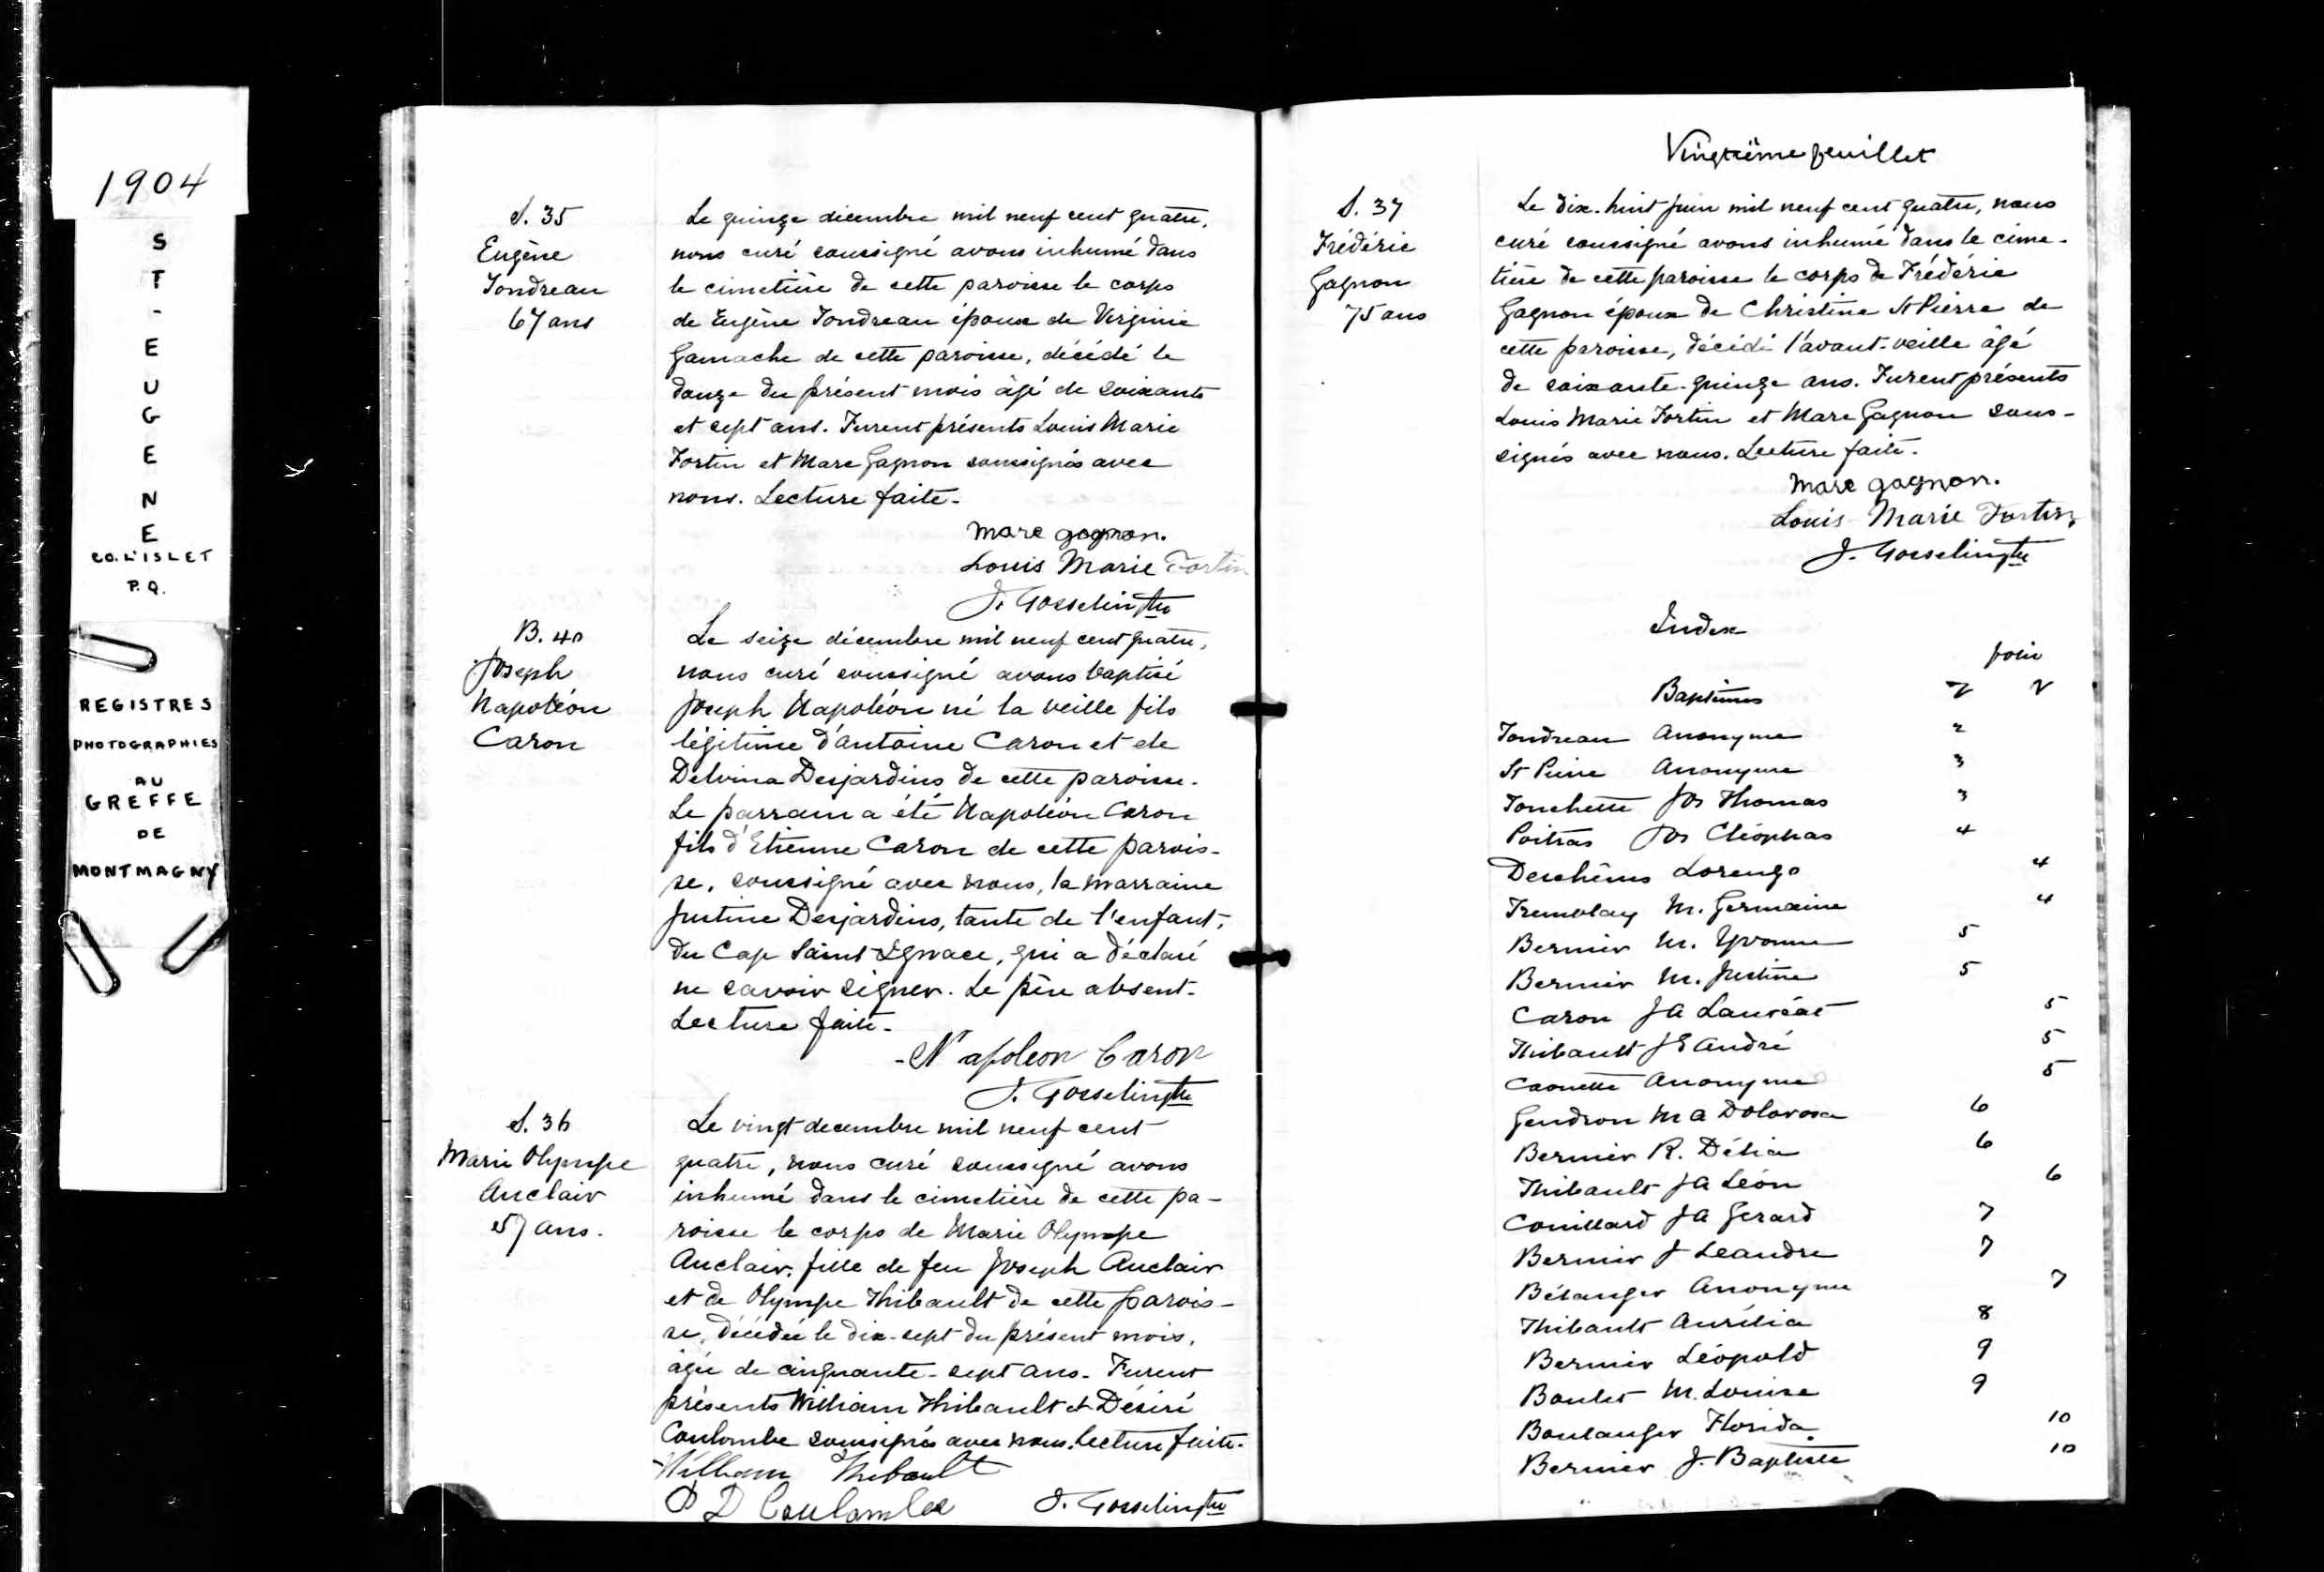 1904
S
T
-
E
U
G
E
N
E
CO. L'ISLET
P.Q.
REGISTRES
PHOTOGRAPHIES
AU
GREFFE
DE
MONTMAGNY
S. 35
Eugène
Tondreau
67 ans
Le quinze décembre mil neuf cent quatre,
nous curé soussigné avons inhumé dans
le cimetière de cette paroisse le corps
de Eugène Tondreau époux de Virginie
Gamache de cette paroisse, décédé le
douze du présent mois âgé de soixante
et sept ans. Furent présents Louis Marie
Fortin et Marc Gagnon soussignés avec
nous. Lecture faite.
Marc gagnon.
Louis Marie Fortin
J. Gosselin ptre
B. 40
Joseph
Napoléon
Caron
Le seize décembre mil neuf cent quatre,
nous curé soussigné avons baptisé
Joseph Napoléon né la veille fils
légitime d'Antoine Caron et de
Delvina Desjardins de cette paroisse.
Le parrain a été Napoléon Caron
fils d'Etienne Caron de cette parois-
se, soussigné avec nous, la marraine
Justine Desjardins, tante de l'enfant,
du Cap Saint Ignace, qui a déclaré
ne savoir signer. Le père absent.
Lecture faite.
Napoleon Caron
J. Gosselin ptre
S. 36
Marie Olympe
Auclair
57 ans.
Le vingt decembre mil neuf cent
quatre, nous curé soussigné avons
inhumé dans le cimetière de cette pa-
roisse le corps de Marie Olympe
Auclair, fille de feu Joseph Auclair
et de Olympe Thibault de cette parois-
se, décédée le dix-sept du présent mois,
âgée de cinquante-sept ans. Furent
présents William Thibault et Désiré
Coulombe soussignés avec nous. Lecture faite.
William Thibault
P D Coulombe J. Gosselin ptre
Vingtième feuillet
S. 37
Frédéric
Gagnon
75 ans
Le dix-huit juin mil neuf cent quatre, nous
curé soussigné avons inhumé dans le cime-
tière de cette paroisse le corps de Frédéric
Gagnon époux de Christine St Pierre de
cette paroisse, décédé l'avant-veille âgé
de soixante-quinze ans. Furent présents
Louis Marie Fortin et Marc Gagnon sous-
signés avec nous. Lecture faite.
Marc gagnon.
Louis Marie Fortin
J. Gosselin ptre
Index
folio
Baptêmes
Tondreau Anonyme 2
St Pierre Anonyme 3
Touchette Jos Thomas 3
Poitras Jos Cléophas 4
Deschênes Lorenzo 4
Tremblay M. Germaine 4
Bernier M. Yvonne 5
Bernier M. Justine 5
Caron J A Lauréat 5
Thibault J E André 5
Caouette Anonyme 5
Gendron M A Dolorosa 6
Bernier R. Délia 6
Thibault J A Léon 6
Couillard J A Gerard 7
Bernier J Leandre 7
Bélanger Anonyme 7
Thibault Aurélia 8
Bernier Léopold 9
Boulet M. Louise 9
Boulanger Florida 10
Bernier J. Baptiste 10